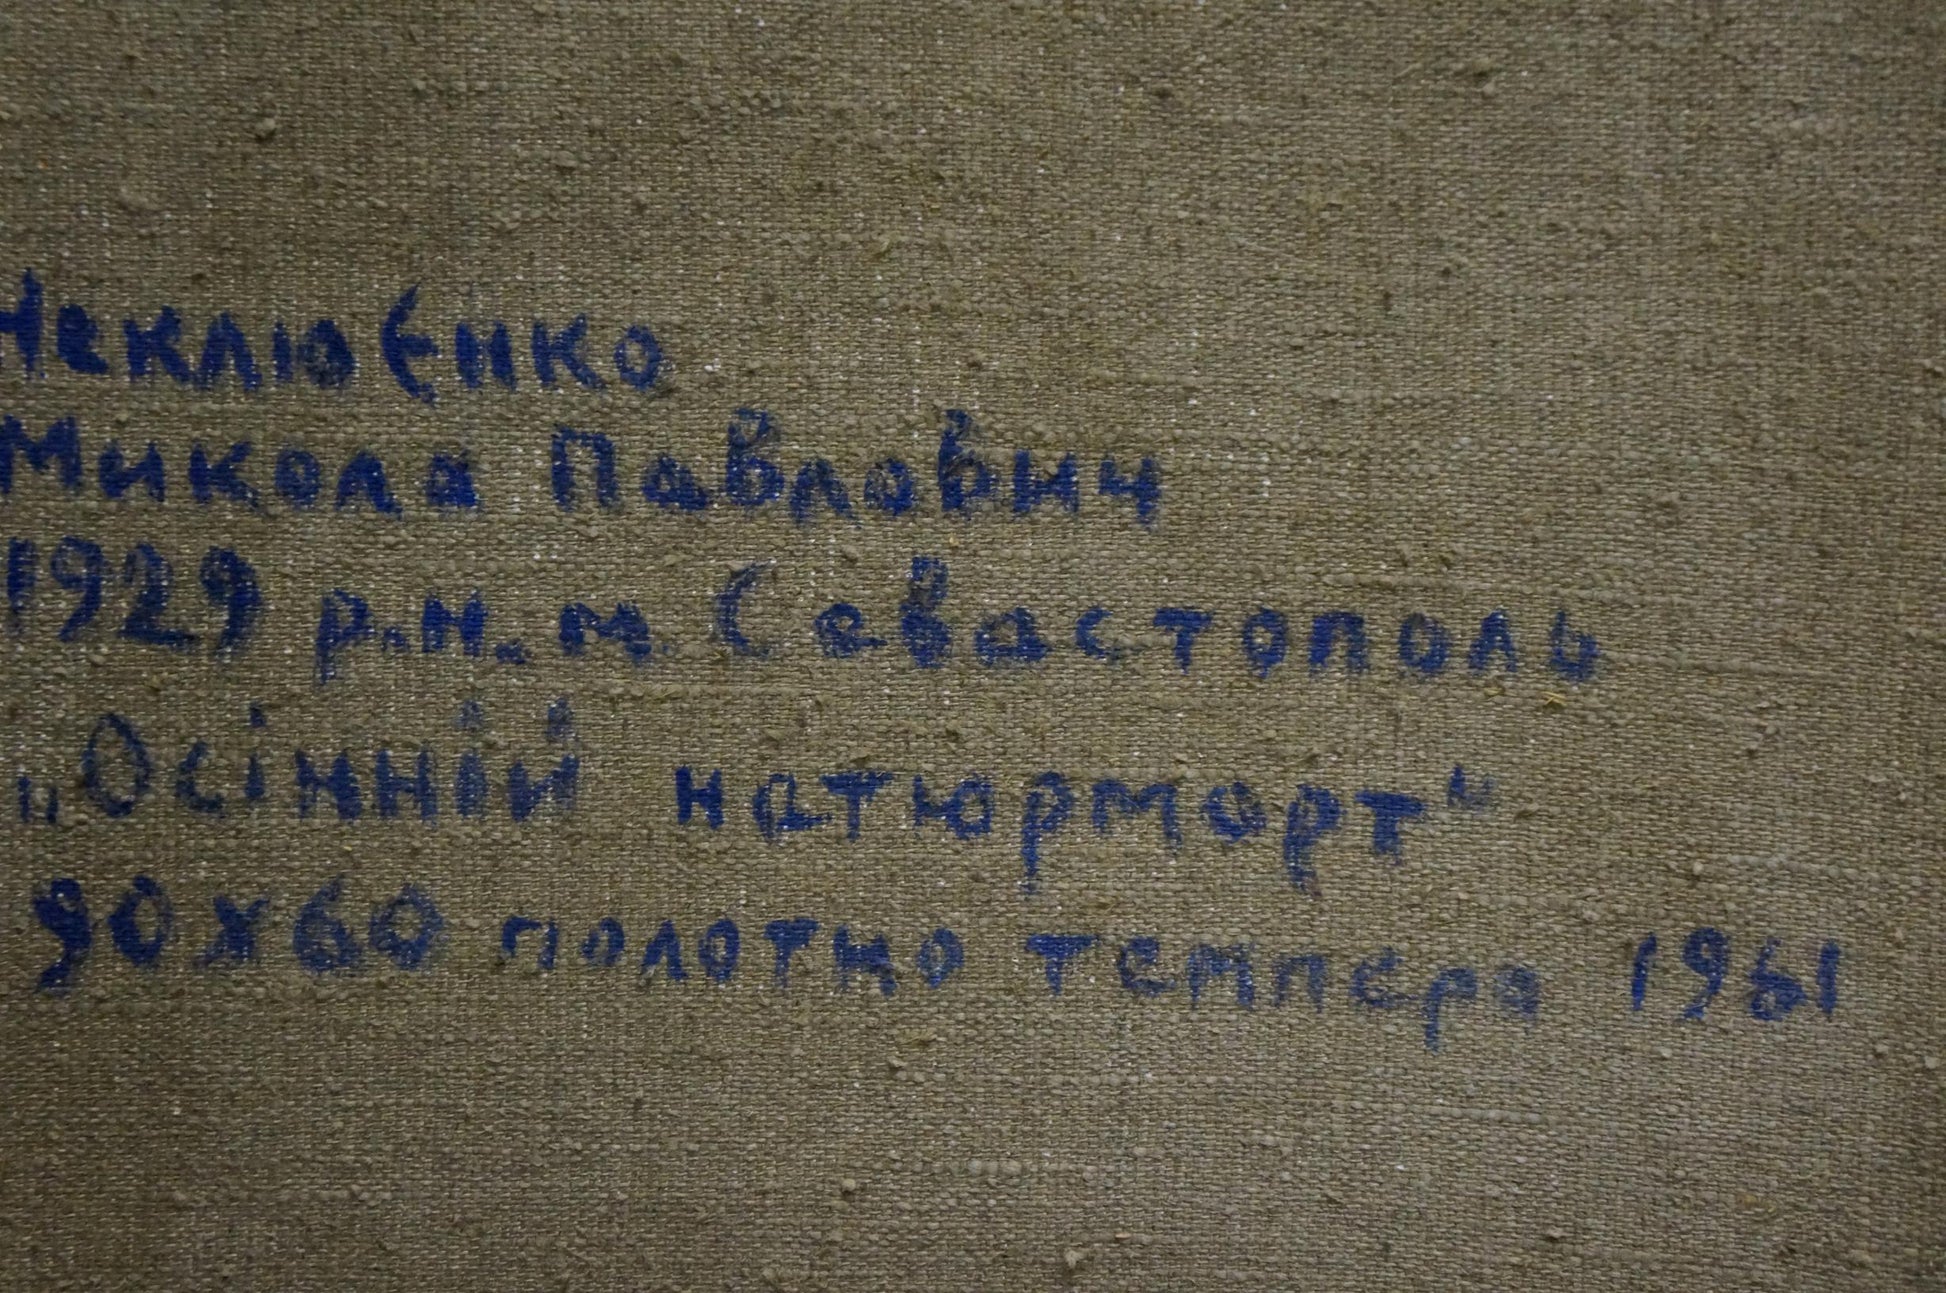 НеклюЄнко
Микола Павлович
1929 р.н. м Севастополь
„Осінній натюрморт"
90х60 полотно темпера 1961